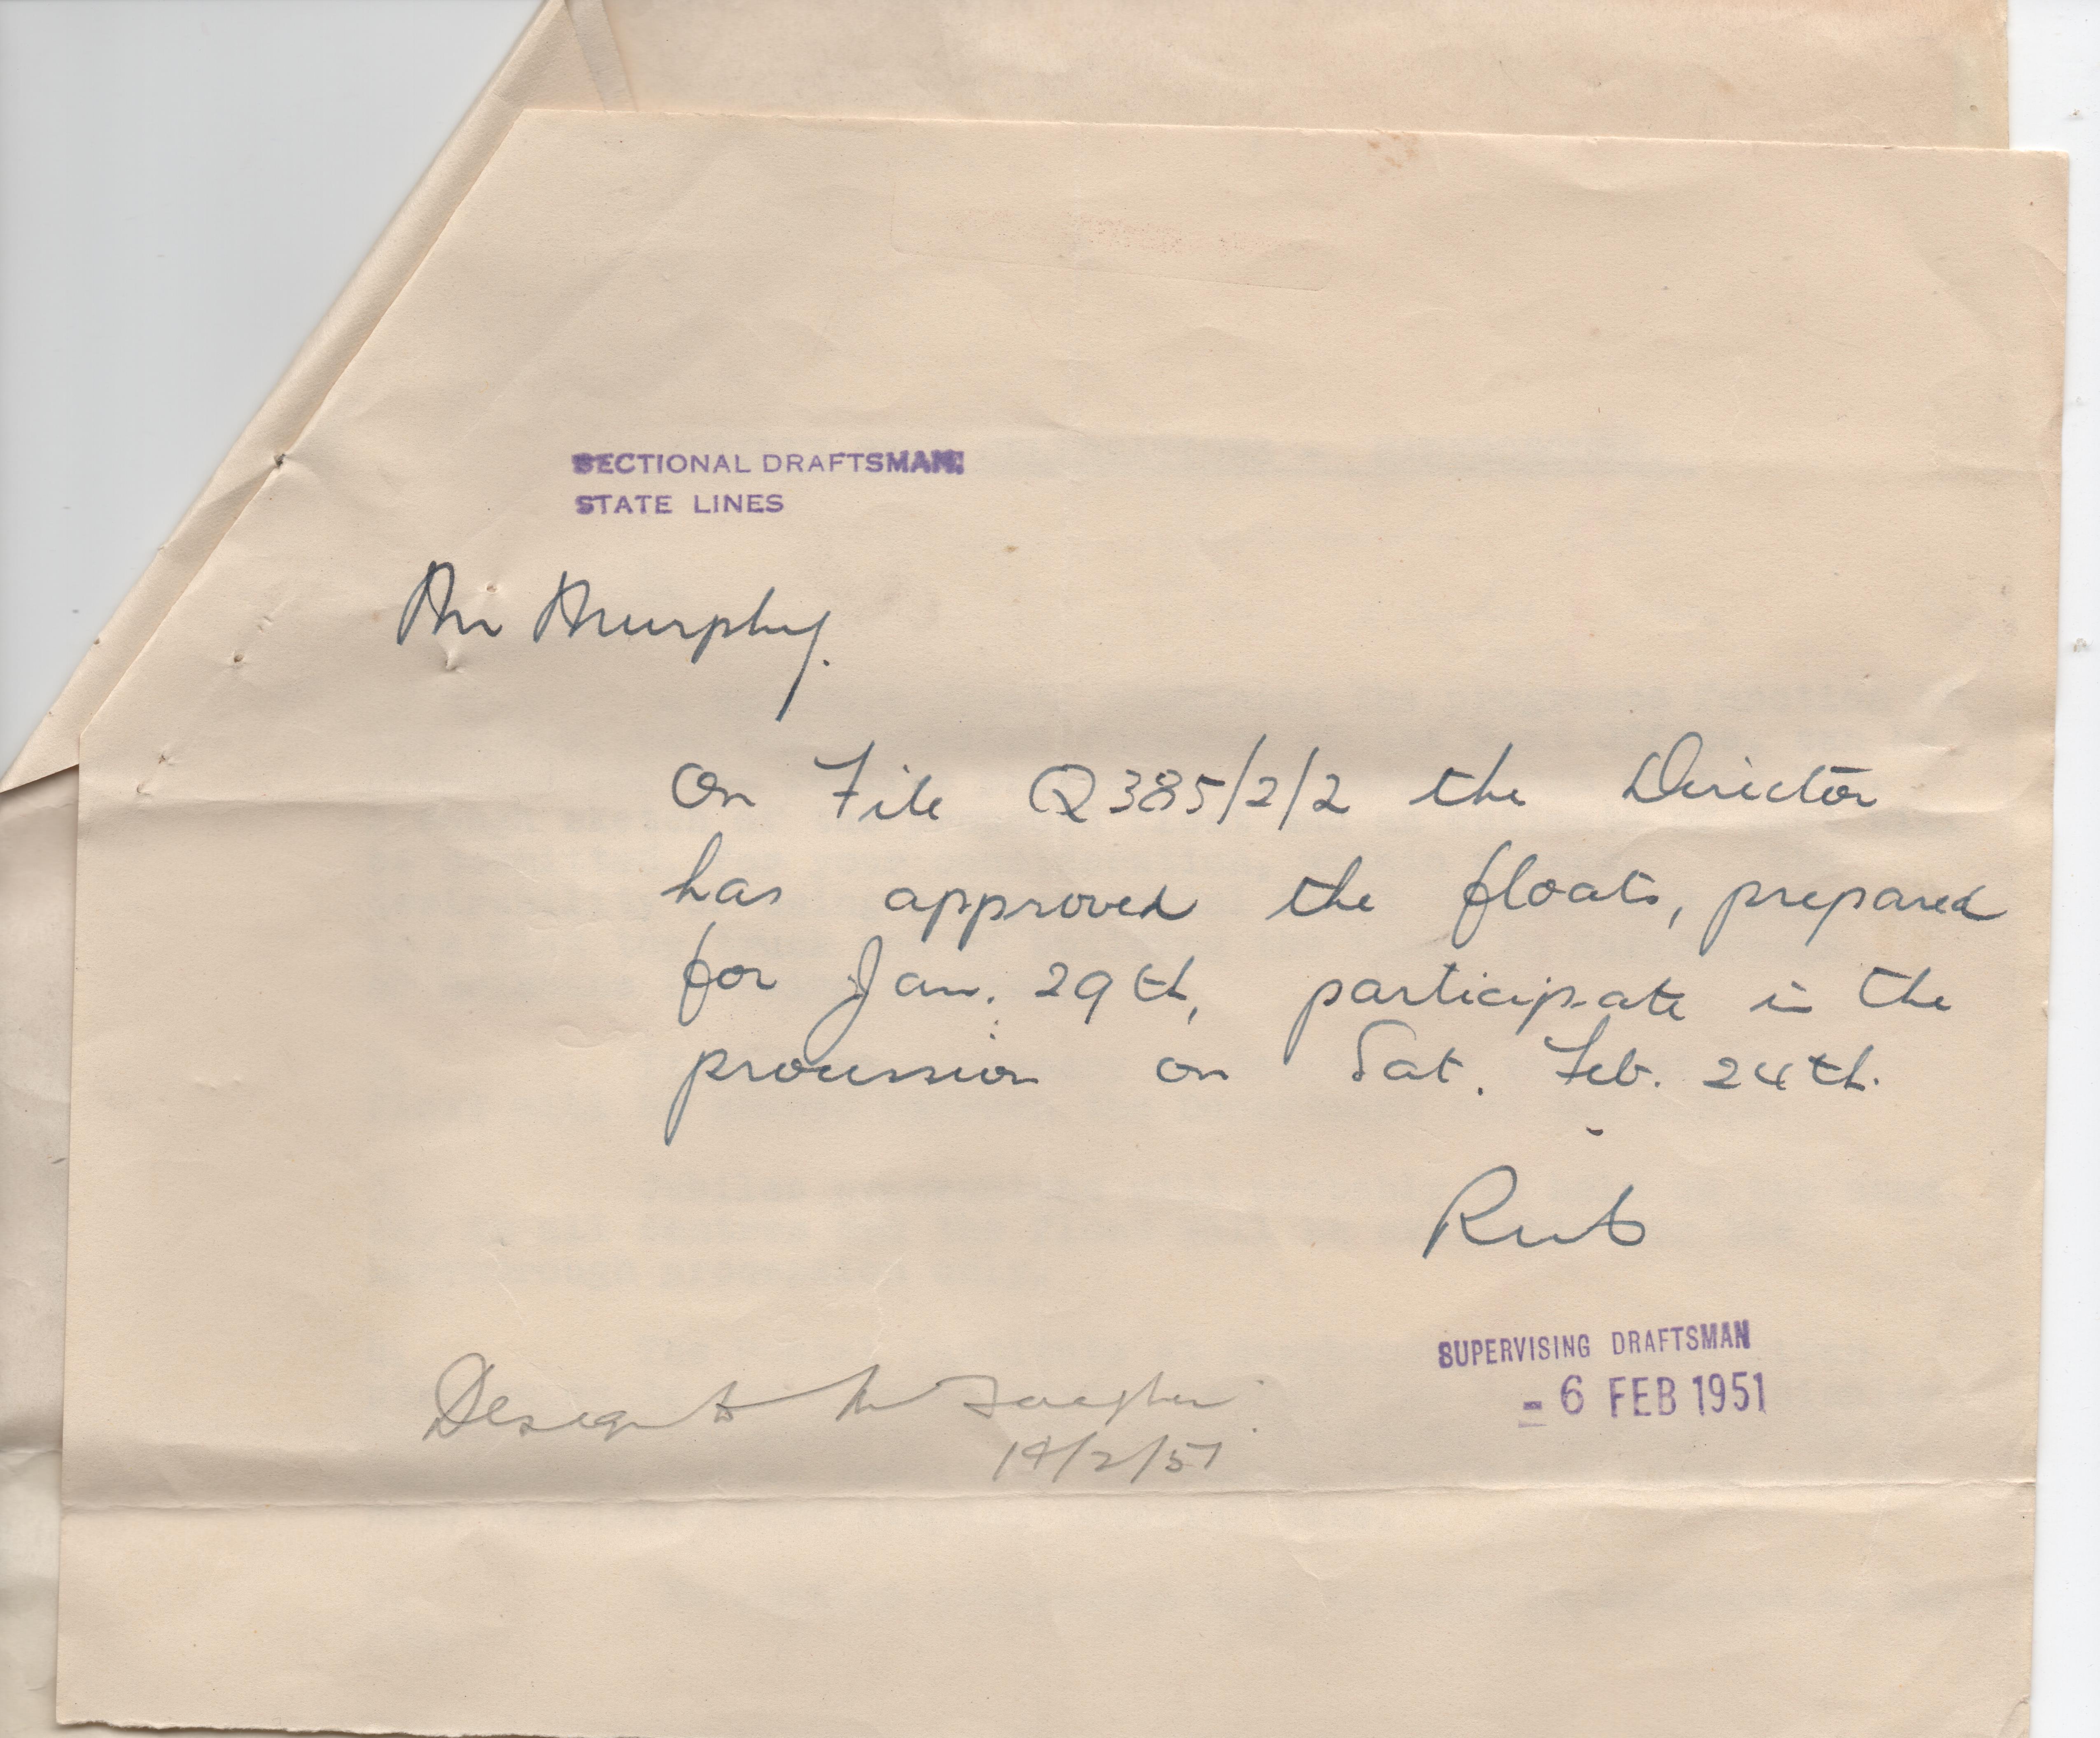 SECTIONAL DRAFTSMAN.
STATE LINES
Mr Murphy.
On File Q385/2/2 the Director
has approved the floats, prepared
for Jan. 29th, participate in the
procession on Sat. Feb. 24th.
SUPERVISING DRAFTSMAN
- 6 FEB 1951
14/2/51